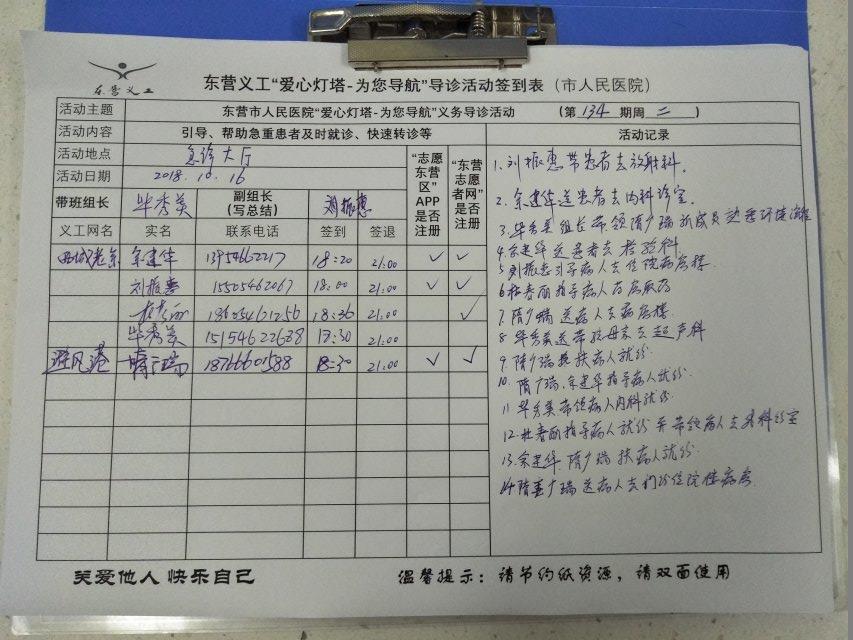 东营义工
东营义工“爱心灯塔-为您导航”导诊活动签到表（市人民医院）
活动主题 东营市人民医院“爱心灯塔-为您导航”义务导诊活动 （第134期周二）
活动内容 引导、帮助急重患者及时就诊、快速转诊等 活动记录
活动地点 急诊大厅
活动日期 2018.10.16
带班组长 毕秀美 副组长（写总结） 刘振惠
“志愿东营区”APP是否注册 “东营志愿者网”是否注册
义工网名 实名 联系电话 签到 签退
余建华 13954662217 18:20 21:00 ✓ ✓
刘振惠 15505462067 18:00 21:00 ✓ ✓
18:36 21:00 ✓
毕秀美 15154622688 17:30 21:00
避风港 隋广瑞 18766601588 18:30 21:00 ✓ ✓
1.刘振惠带患者去放射科.
2.余建华送患者去内科诊室.
3.毕秀美组长带领隋广瑞新成员熟悉环境
4.余建华送患者去检验科
5.刘振惠引导病人去住院病房楼
6.杜春丽指导病人药房取药
7.隋广瑞送病人去病房楼
8.毕秀美送带孩母亲去超声科
9.隋广瑞搀扶病人就诊
10.隋广瑞.余建华指导病人就诊.
11.毕秀美带领病人内科就诊
12.杜春丽指导病人就诊并带领病人去外科诊室
13.余建华 隋广瑞 扶病人就诊
14.隋广瑞送病人去门诊住院楼病房
关爱他人 快乐自己
温馨提示：请节约纸资源，请双面使用